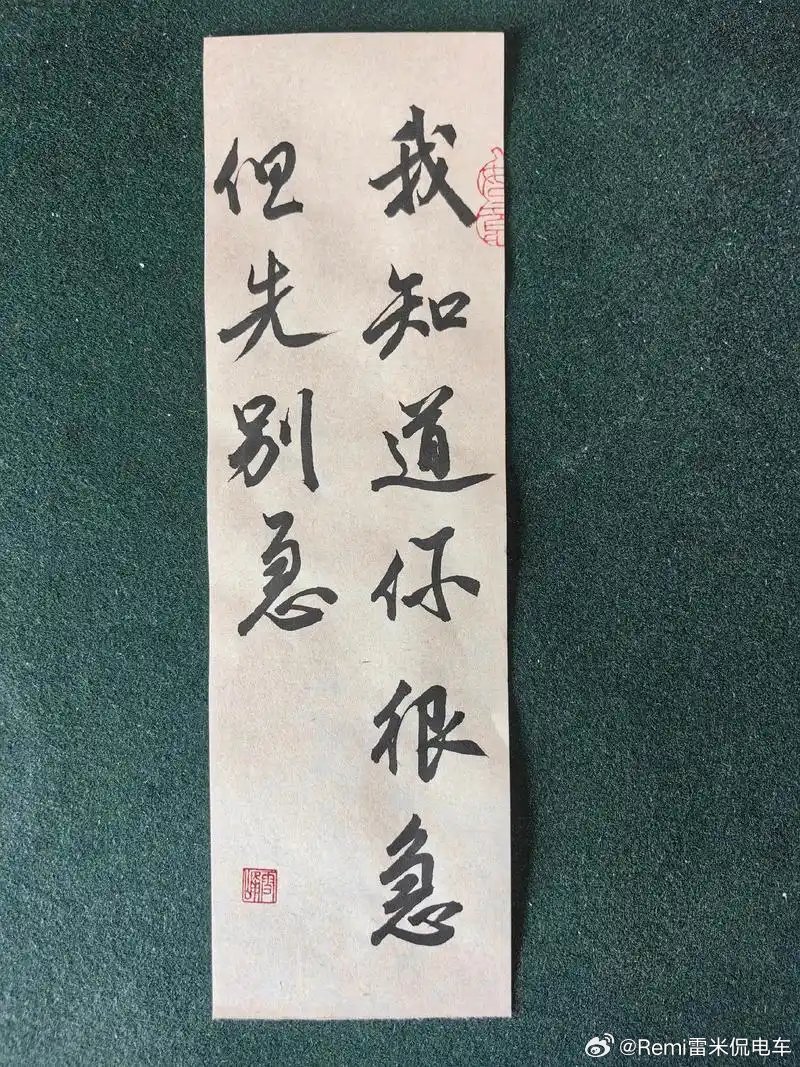 我知道你很急
但先别急
@Remi雷米侃电车